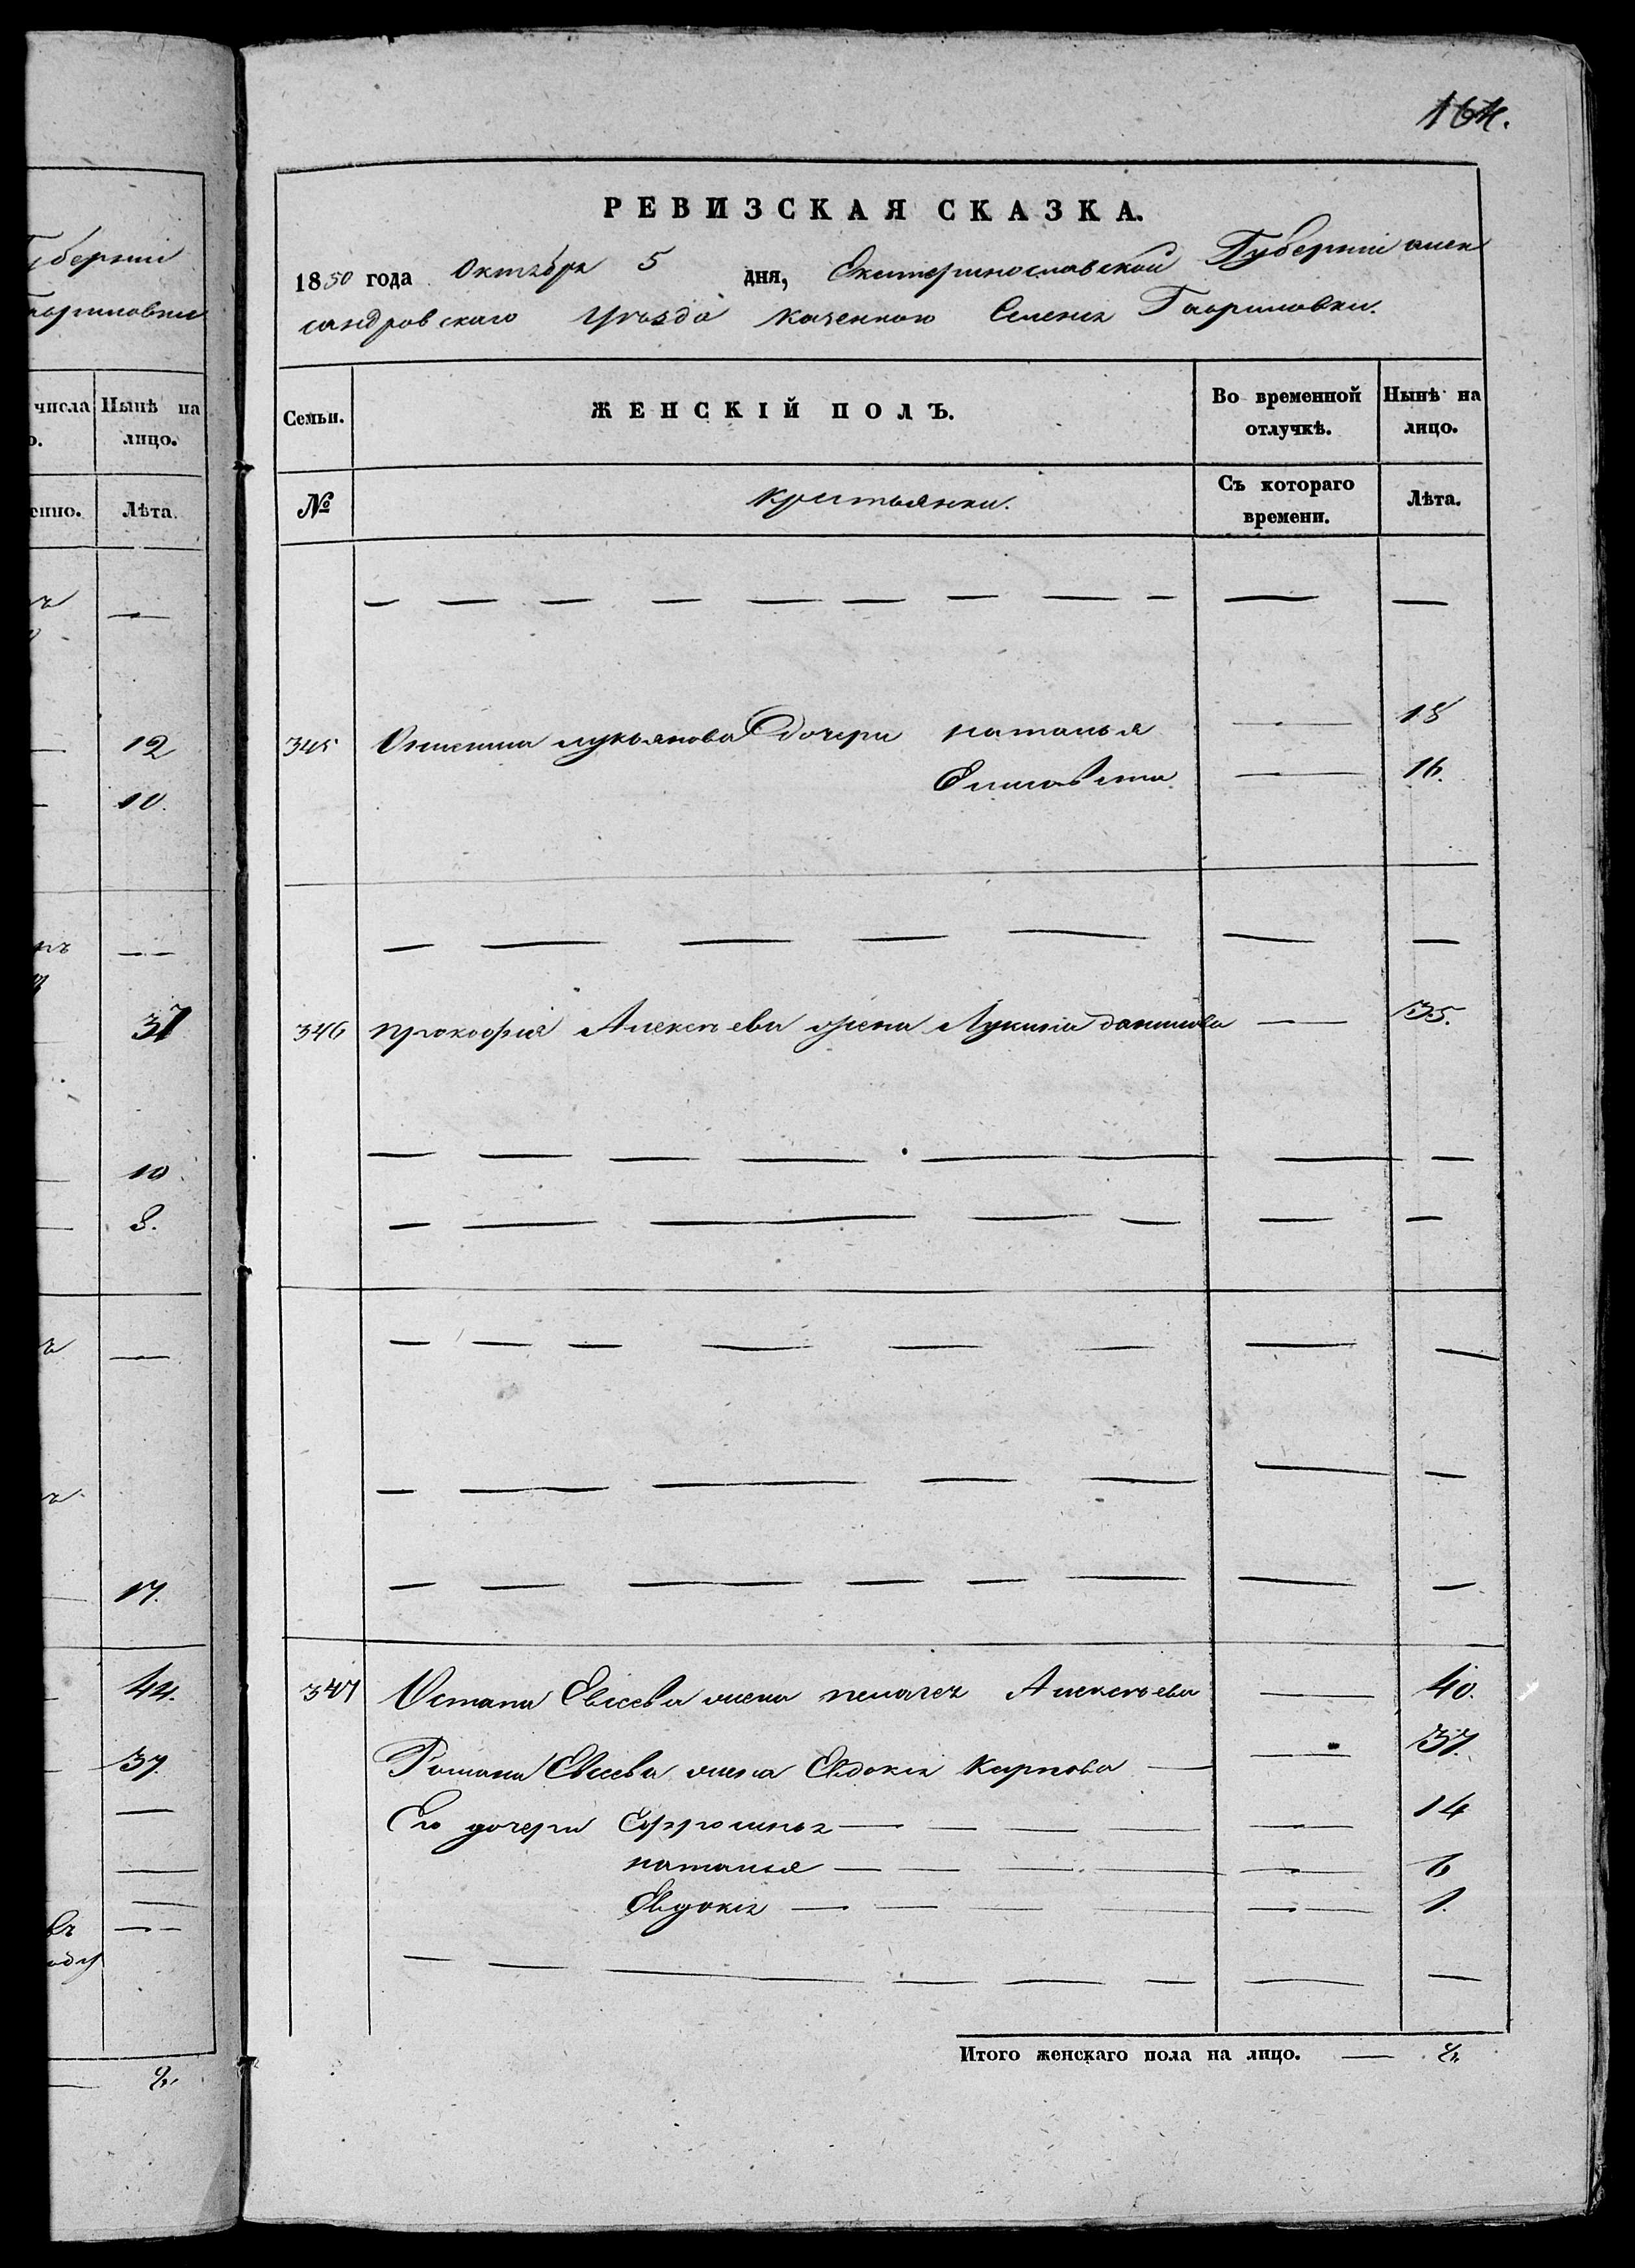 164.
РЕВИЗСКАЯ СКАЗКА.
1850 года Октября 5 дня, Екатеринославской Губерніи алек
сандровскаго уѣзда казенного Селенія Гавриловки.
Семьи.
ЖЕНСКІЙ ПОЛЪ.
Во временной отлучкѣ.
Нынѣ на лицо.
№
крестьянки.
Съ котораго времени.
Лѣта.
345 лукьянова дочери наталья 18
Елисавета 16.
346 прокофія Алексѣева жена Лукия данилова 35.
347 Остапа Евсеева жена пелагея Алексѣева 40.
Романа Евсеева жена Евдокия Карпова 37.
Его дочери Ефросинья 14
наталья 6
Евдокия 1.
Итого женскаго пола на лицо. 8.
уберніи
авриловки
числа
Нынѣ на
о.
лицо.
енно.
Лѣта.
12
10.
37
10
8.
17.
44.
37.